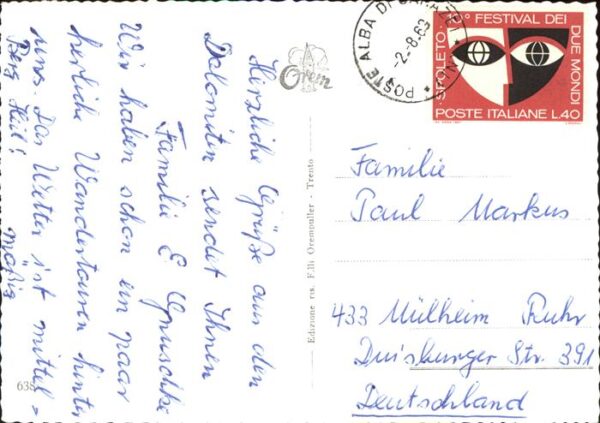 Herzliche Grüße aus den
Dolomiten sendet Ihnen
Familie E
Wir haben schon ein paar
herrliche Wandertouren hinter
uns. Das Wetter ist mittel=
mäßig
Berg Heil!
Orem
Edizione ris. F.lli Orempuller - Trento
638
POSTE ALBA DI CANAZEI
2-8-69
SPOLETO-10° FESTIVAL DEI DUE MONDI
POSTE ITALIANE L.40
Familie
Paul Markus
433 Mülheim Ruhr
Duisburger Str. 391
Deutschland